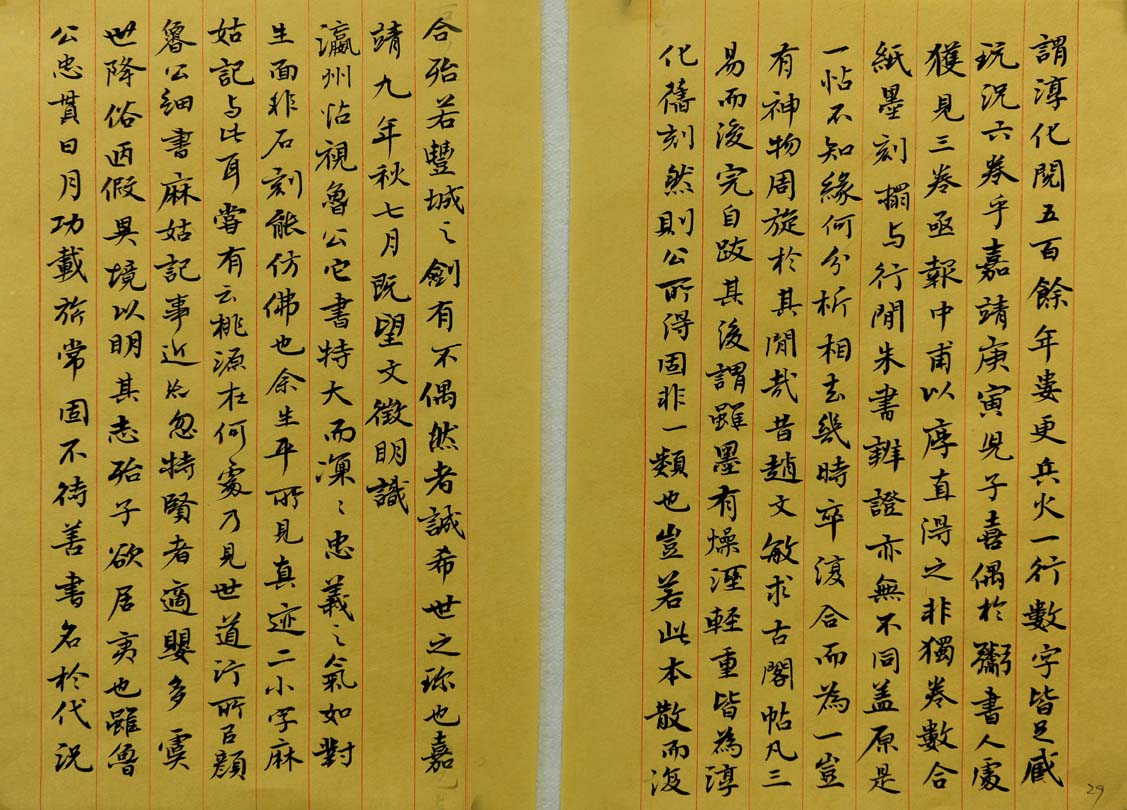 謂淳化閱五百餘年婁更兵火一行數字皆足藏
玩況六卷乎嘉靖庚寅兒子喜偶於鬻書人處
獲見三卷亟報中甫以厚直得之非獨卷數合
紙墨刻搨与行閒朱書辨證亦無不同盖原是
一帖不知緣何分析相去幾時卒復合而為一豈
有神物周旋於其閒哉昔趙文敏求古閣帖凡三
易而後完自跋其後謂雖墨有燥溼輕重皆為淳
化舊刻然則公所得固非一類也豈若此本散而復
合殆若豐城之劒有不偶然者誠希世之珎也嘉
靖九年秋七月既望文徵明識
瀛州帖視魯公它書特大而凜〻忠義之氣如對
生面非石刻能仿佛也余生平所見真迹二小字麻
姑記与此耳嘗有云桃源在何處乃見世道汙所㠯顔
魯公細書麻姑記事近荒忽特賢者適嬰多虞
世降俗迺假異境以明其志殆子欲居夷也雖魯
公忠貫日月功載旂常固不待善書名於代況
29